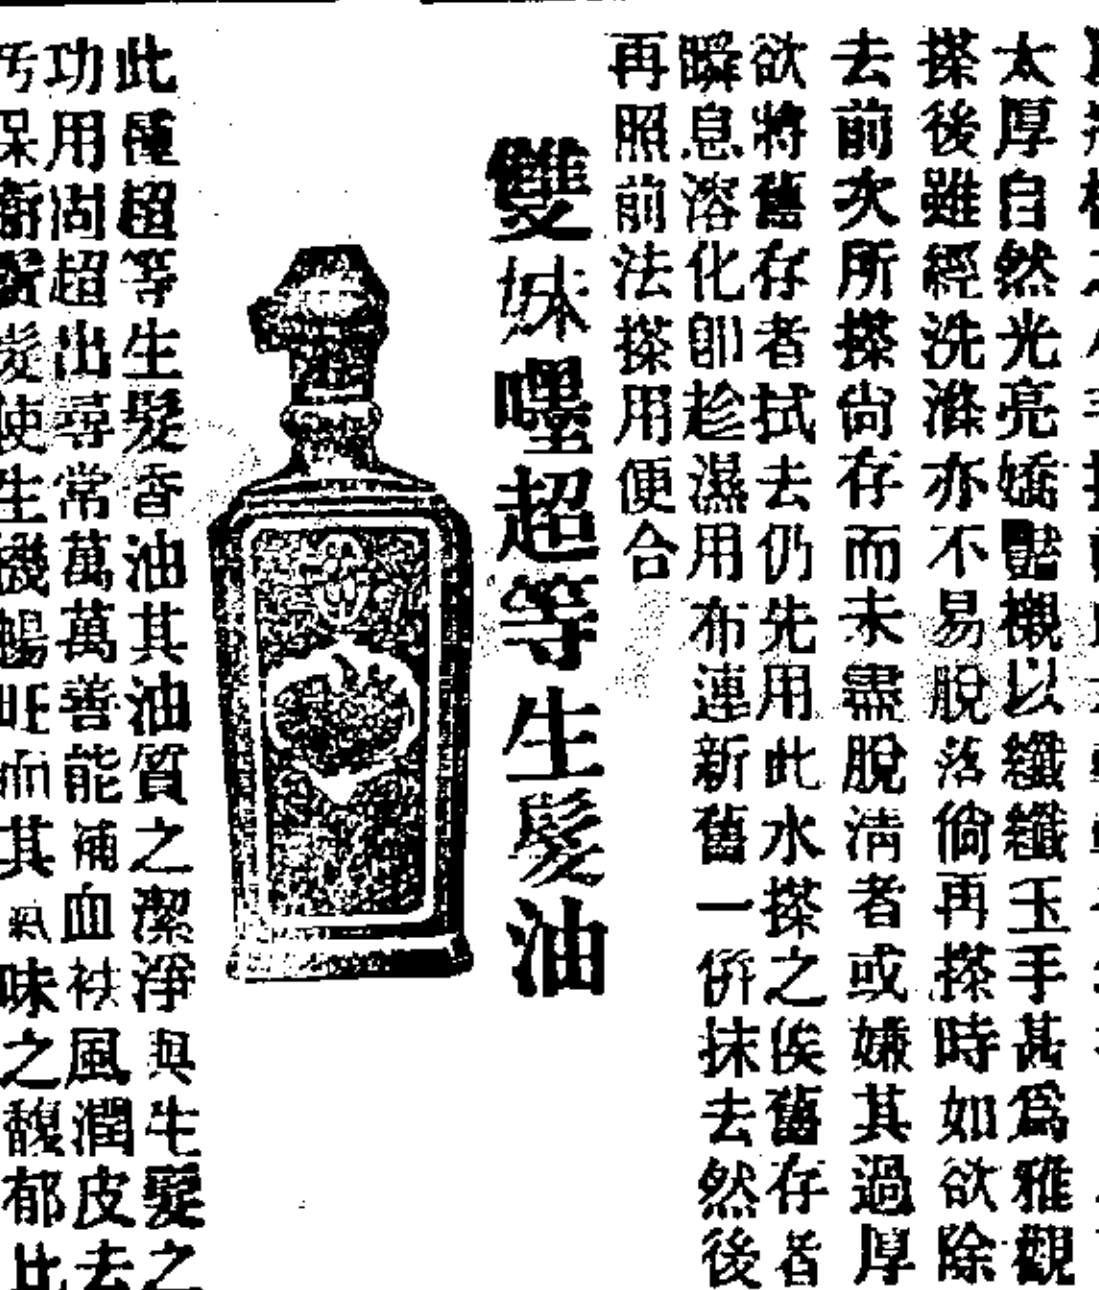 太厚自然光亮嬌豔襯以纖纖玉手甚爲雅觀
搽後雖經洗滌亦不易脫落倘再搽時如欲除
去前次所搽尙存而未盡脫淸者或嫌其過厚
欲將舊存者拭去仍先用此水搽之俟舊存者
瞬息溶化卽趁濕用布連新舊一倂抹去然後
再照前法搽用便合
雙妹嚜超等生髮油
此種超等生髮香油其油質之潔淨與生髮之
功用尚超出尋常萬萬善能補血祛風潤皮去
保衛髮使生機暢旺而其氣味之馥郁比